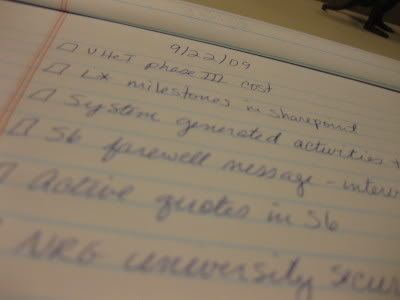 9/22/09
VHCT phase III cost
Lx milestones in sharepoint
System generated activities +
S6 farewell message - interv
Active quotes in S6
NRG university secur